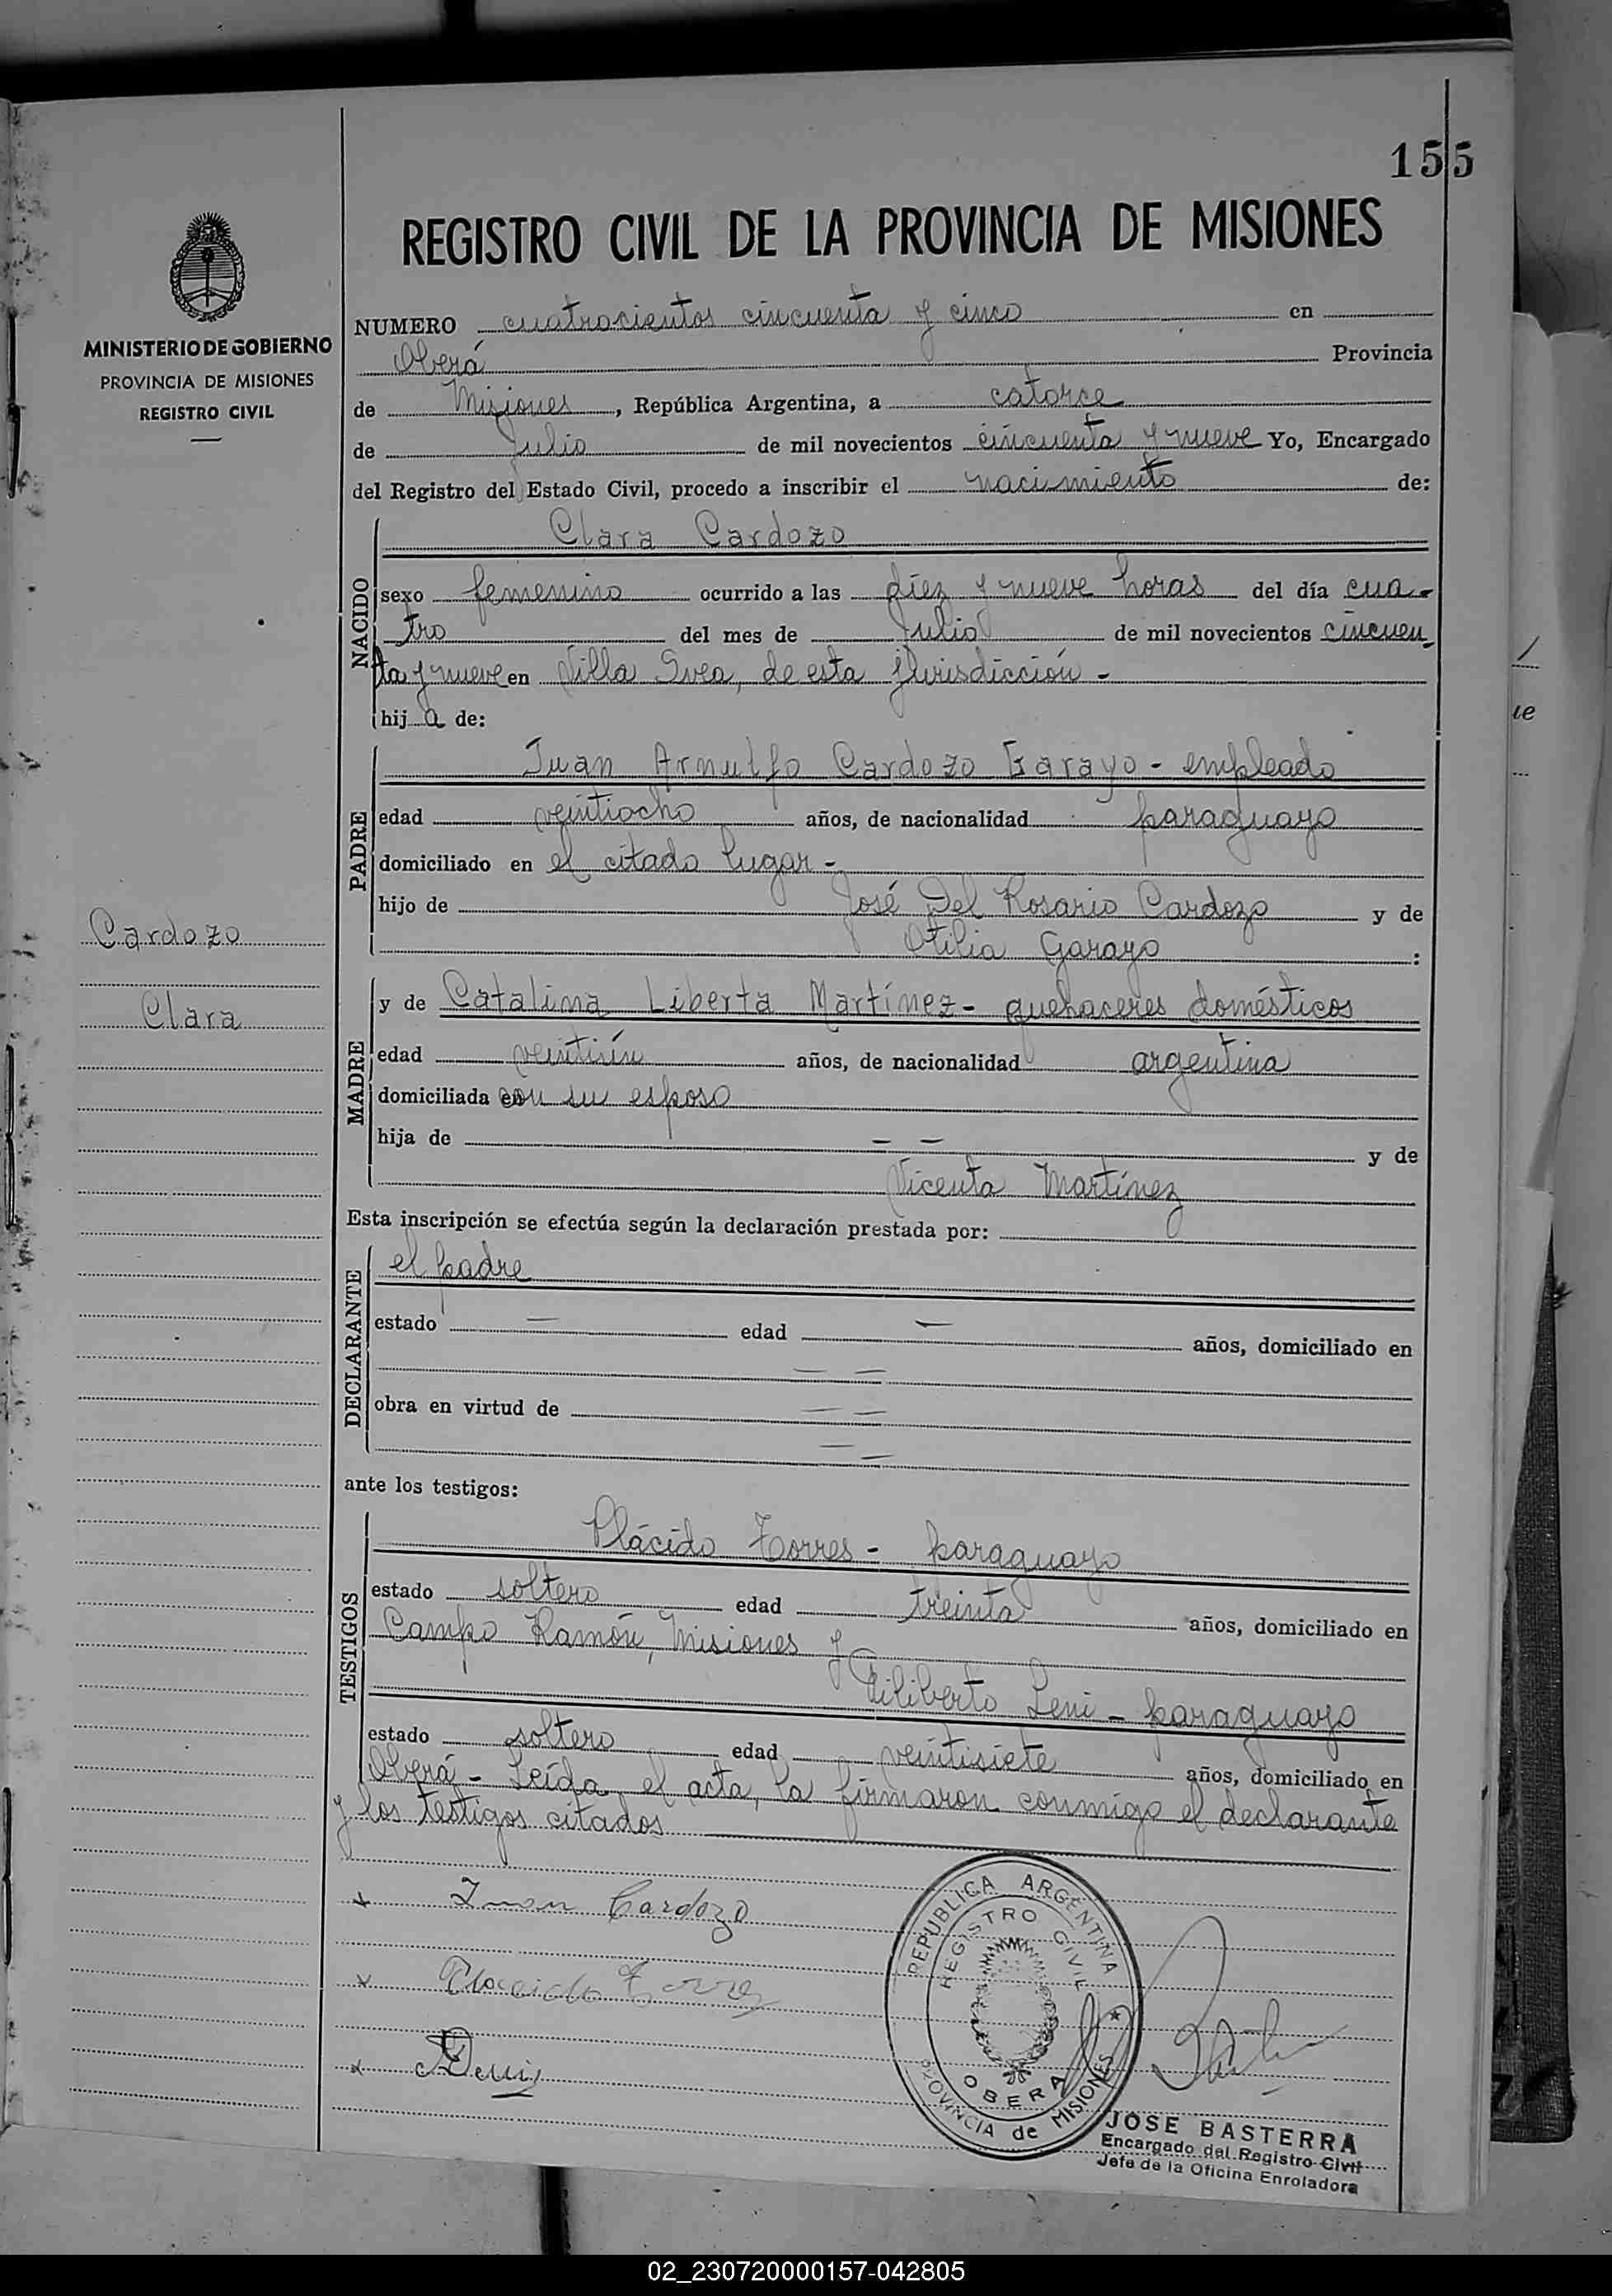 155
REGISTRO CIVIL DE LA PROVINCIA DE MISIONES
MINISTERIO DE GOBIERNO
PROVINCIA DE MISIONES
REGISTRO CIVIL
NUMERO cuatrocientos cincuenta y cinco en
Oberá Provincia
de Misiones, República Argentina, a catorce
de Julio de mil novecientos cincuenta y nueve Yo, Encargado
del Registro del Estado Civil, procedo a inscribir el nacimiento de:
NACIDO
Clara Cardozo
sexo femenino ocurrido a las diez y nueve horas del día cua-
tro del mes de Julio de mil novecientos cincuen
ta y nueve en Villa Svea, de esta jurisdicción -
hija de:
PADRE
Juan Arnulfo Cardozo Garayo - empleado
edad veintiocho años, de nacionalidad paraguayo
domiciliado en el citado lugar -
hijo de José Del Rosario Cardozo y de
Otilia Garayo :
Cardozo
Clara
MADRE
y de Catalina Liberta Martínez - quehaceres domésticos
edad veintiún años, de nacionalidad argentina
domiciliada con su esposo
hija de — — y de
Vicenta Martínez
Esta inscripción se efectúa según la declaración prestada por:
DECLARANTE
el padre
estado — edad — años, domiciliado en
— —
obra en virtud de — —
— —
ante los testigos:
TESTIGOS
Plácido Torres - paraguayo
estado soltero edad treinta años, domiciliado en
Campo Ramón, Misiones y
Filiberto Leni - paraguayo
estado soltero edad veintisiete años, domiciliado en
Oberá - Leída el acta, la firmaron conmigo el declarante
y los testigos citados
x Juan Cardozo
x Placido Torres
x
REPUBLICA ARGENTINA
REGISTRO CIVIL
OBERA
PROVINCIA de MISIONES
JOSE BASTERRA
Encargado del Registro Civil
Jefe de la Oficina Enroladora
ue
02_230720000157-042805